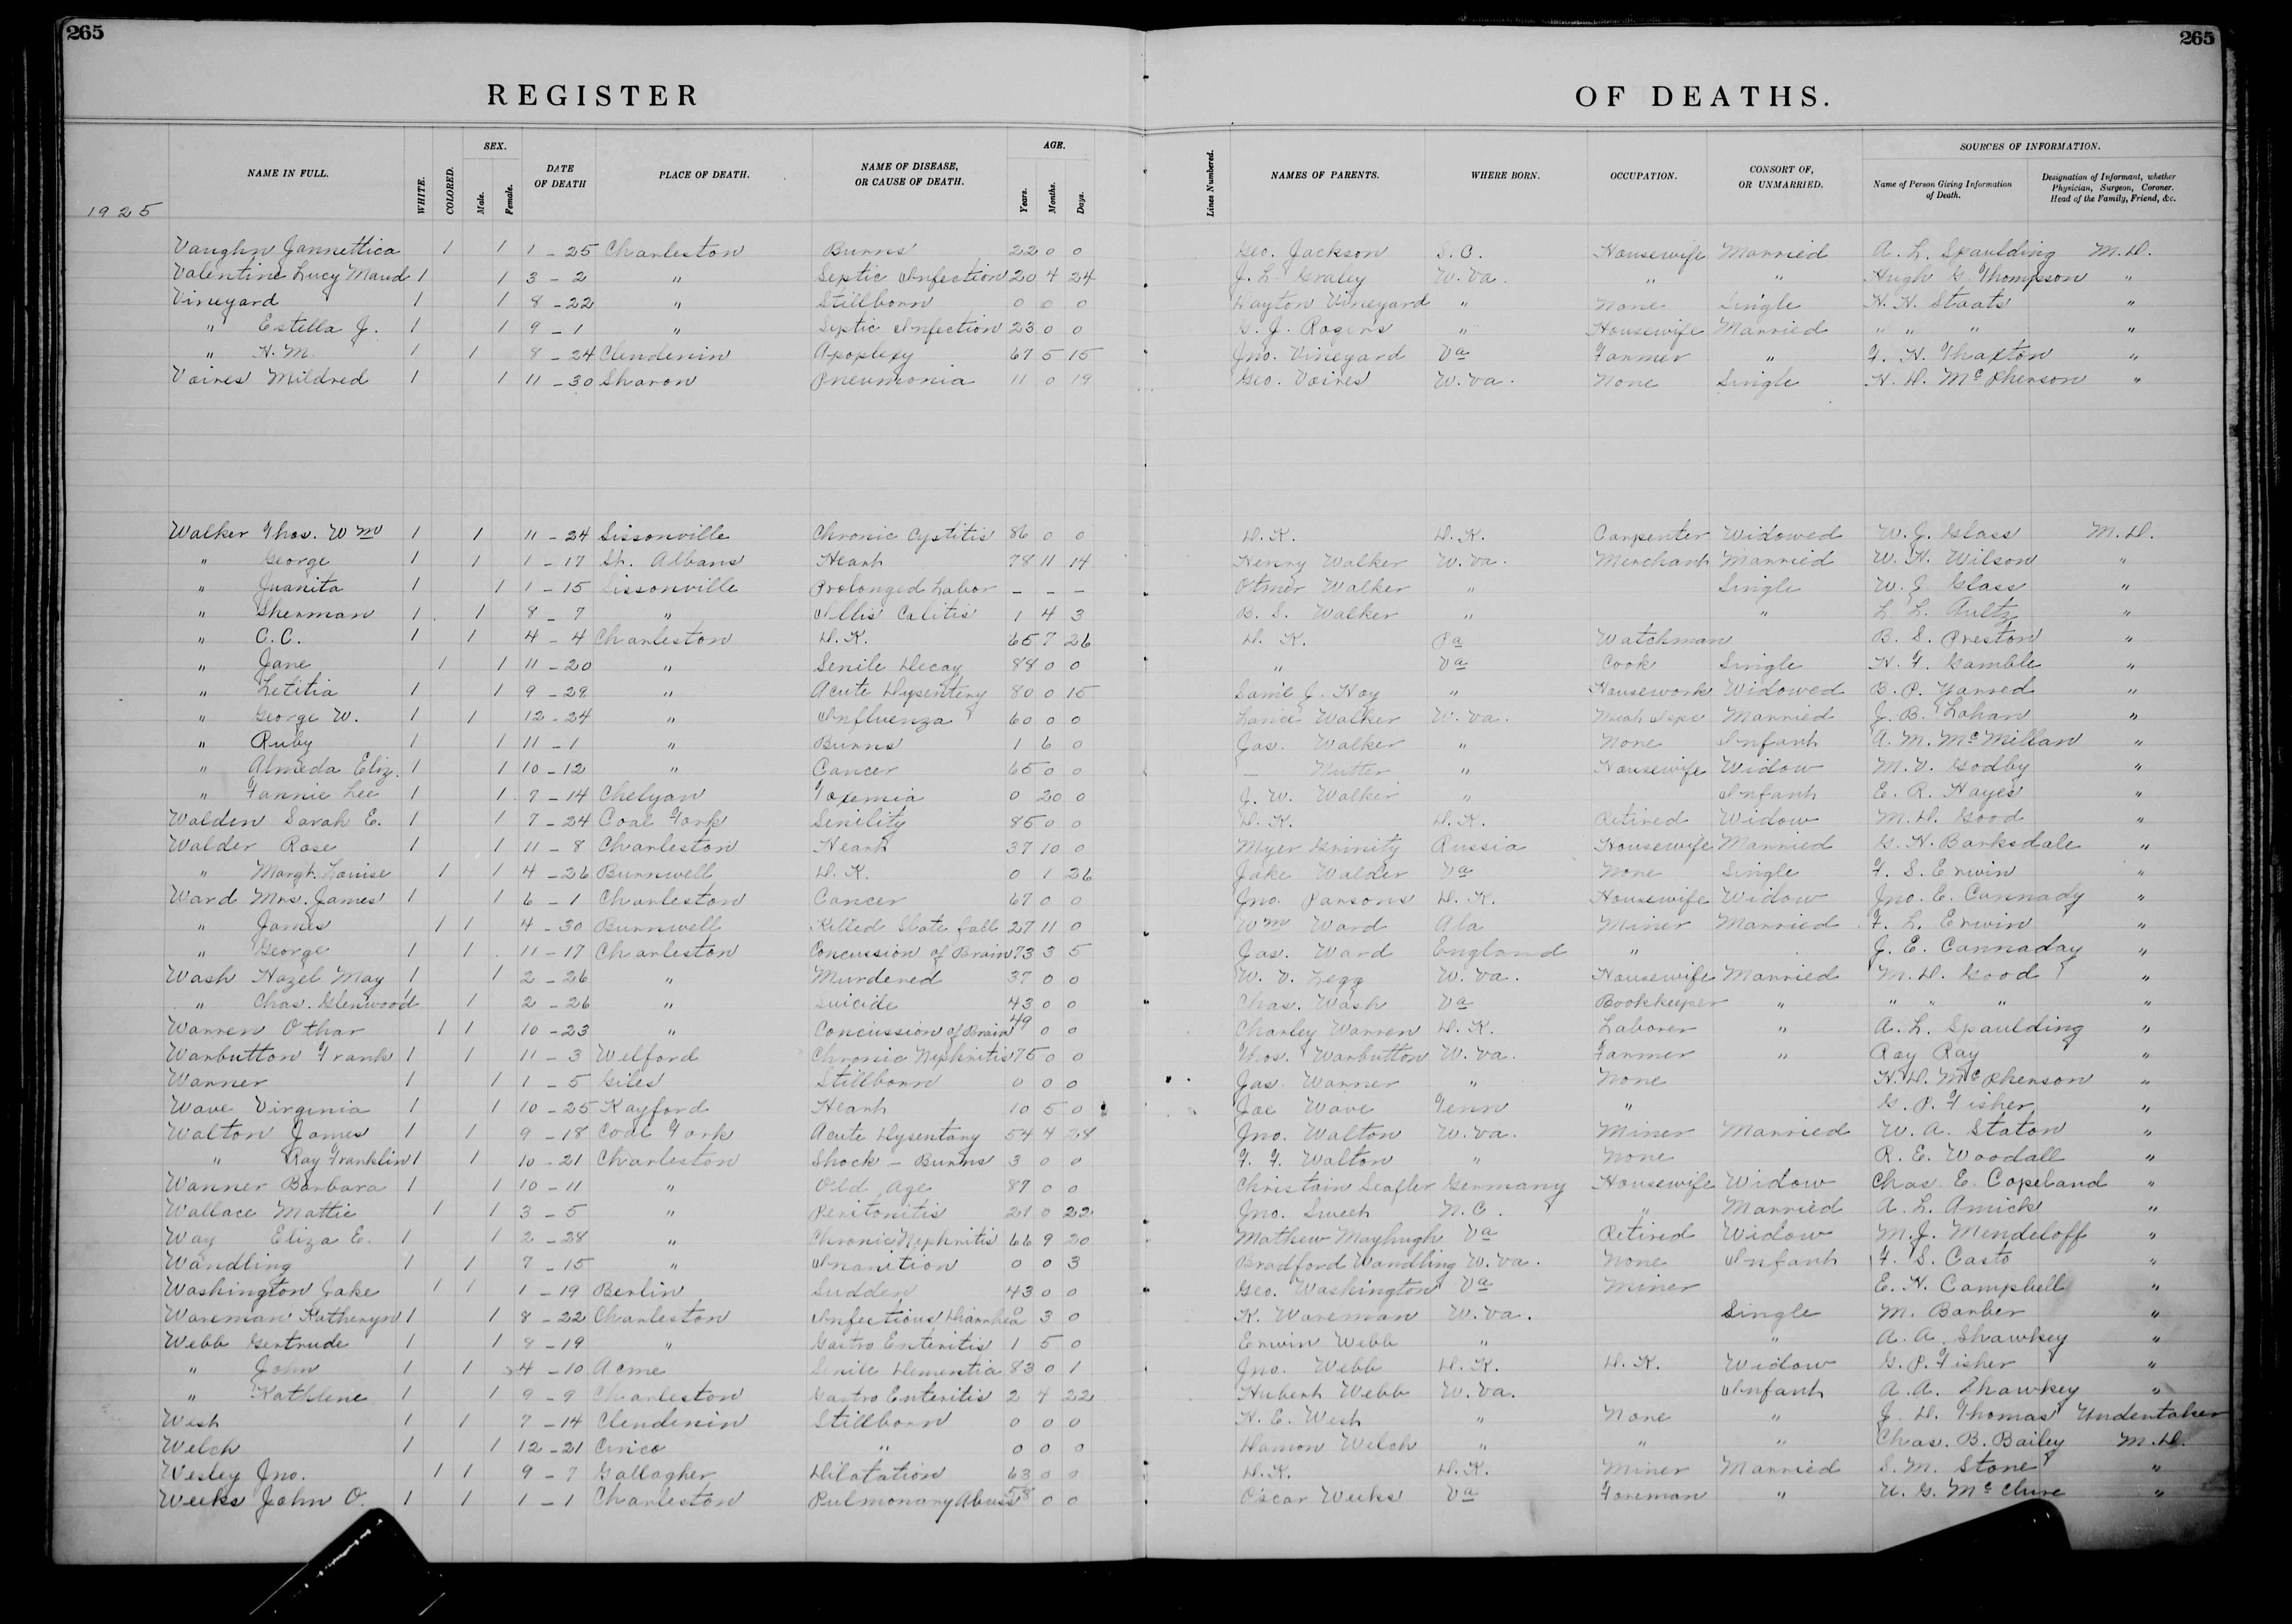 265 265
REGISTER OF DEATHS.
1925
NAME IN FULL. WHITE. COLORED. SEX. Male. Female. DATE OF DEATH PLACE OF DEATH. NAME OF DISEASE, OR CAUSE OF DEATH. AGE. Years. Months. Days. Lines Numbered. NAMES OF PARENTS. WHERE BORN. OCCUPATION. CONSORT OF, OR UNMARRIED. SOURCES OF INFORMATION. Name of Person Giving Information of Death. Designation of Informant, whether Physician, Surgeon, Coroner. Head of the Family, Friend, &c.
Vaughn Jannettica 1 1 1-25 Charleston Burns 22 0 0 Geo. Jackson S.C. Housewife Married A. L. Spaulding M.D.
Valentine Lucy Maud 1 1 3-2 " Septic Infection 20 4 24 J. L. Graley W. Va. " " Hugh G. Thompson "
Vineyard 1 1 8-22 " Stillborn 0 0 0 Dayton Vineyard " None Single H. H. Staats "
" Estella J. 1 1 9-1 " Septic Infection 23 0 0 G. J. Rogers " Housewife Married " " " "
" H. M. 1 1 8-24 Clendenin Apoplexy 67 5 15 Jno. Vineyard Va Farmer " F. H. Thaxton "
Voires Mildred 1 1 11-30 Sharon Pneumonia 11 0 19 Geo. Voires W. Va. None Single H. D. McPherson "
Walker Thos. Wm 1 1 11-24 Sissonville Chronic Cystitis 86 0 0 D.K. D.K. Carpenter Widowed W. J. Glass M.D.
" George 1 1 1-17 St. Albans Heart 78 11 14 Henry Walker W. Va. Merchant Married W. H. Wilson "
" Juanita 1 1 1-15 Sissonville Prolonged Labor - - - Otmer Walker " Single W. J. Glass "
" Sherman 1 1 8-7 " Illis Colitis 1 4 3 B. S. Walker " " L. L. Aultz "
" C.C. 1 1 4-4 Charleston D.K. 65 7 26 D.K. Pa Watchman B. S. Preston "
" Jane 1 1 11-20 " Senile Decay 88 0 0 " Va Cook Single H. F. Gamble "
" Letitia 1 1 9-29 " Acute Dysentery 80 0 15 Saml J. Hoy " Housework Widowed B. P. Yarred "
" George W. 1 1 12-24 " Influenza 60 0 0 Walker W. Va. Married J. B. Lohan "
" Ruby 1 1 11-1 " Burns 1 6 0 Jas. Walker " None Infant A. M. McMillan "
" Almeda Eliz. 1 1 10-12 " Cancer 65 0 0 - Nutter " Housewife Widow M. V. Godby "
" Fannie Lee 1 1 7-14 Chelyan Toxemia 0 20 0 J. W. Walker " Infant E. R. Hayes "
Walden Sarah E. 1 1 7-24 Coal Fork Senility 85 0 0 D.K. D.K. Retired Widow M. D. Good "
Walder Rose 1 1 11-8 Charleston Heart 37 10 0 Myer Grinity Russia Housewife Married G. H. Barksdale "
" Margt. Louise 1 1 4-26 Burnwell D.K. 0 1 26 Jake Walder Va None Single F. S. Erwin "
Ward Mrs. James 1 1 6-1 Charleston Cancer 67 0 0 Jno. Parsons D.K. Housewife Widow Jno. E. Cannady "
" James 1 1 4-30 Burnwell Killed Slate fall 27 11 0 Wm Ward Ala Miner Married F. L. Erwin "
" George 1 1 11-17 Charleston Concussion of Brain 73 3 5 Jas. Ward England " J. E. Cannaday "
Wash Hazel May 1 1 2-26 " Murdered 37 0 0 W. V. Legg W. Va. Housewife Married M. D. Good "
" Chas. Glenwood 1 1 2-26 " Suicide 43 0 0 Chas. Wash Va Bookkeeper " " " " "
Warren Othar 1 1 10-23 " Concussion of Brain 49 0 0 Charley Warren D.K. Laborer " A. L. Spaulding "
Warbutton Frank 1 1 11-3 Welford Chronic Nephritis 75 0 0 Thos. Warbutton W. Va. Farmer " Roy Ray "
Warner 1 1 1-5 Giles Stillborn 0 0 0 Jas. Warner " None H. D. McPherson "
Wave Virginia 1 1 10-25 Kayford Heart 10 5 0 Joe Wave Tenn " G. P. Fisher "
Walton James 1 1 9-18 Coal Fork Acute Dysentary 54 4 28 Jno. Walton W. Va. Miner Married W. A. Staton "
" Ray Franklin 1 1 10-21 Charleston Shock - Burns 3 0 0 F. F. Walton " None R. E. Woodall "
Wanner Barbara 1 1 10-11 " Old Age 87 0 0 Christain Seafler Germany Housewife Widow Chas. E. Copeland "
Wallace Mattie 1 1 3-5 " Peritonitis 21 0 22 Jno. Sweet N.C. " Married A. L. Amick "
Way Eliza E. 1 1 2-28 " Chronic Nephritis 66 9 20 Mathew Mayhugh Va Retired Widow M. J. Mendeloff "
Wandling 1 1 7-15 " Inanition 0 0 3 Bradford Wandling W. Va. None Infant F. S. Casto "
Washington Jake 1 1 1-19 Berlin Sudden 43 0 0 Geo. Washington Va Miner E. H. Campbell "
Wareman Katheryn 1 1 8-22 Charleston Infectious Diarrhea 0 3 0 K. Wareman W. Va. Single M. Barber "
Webb Gertrude 1 1 8-19 " Gastro Enteritis 1 5 0 Erwin Webb " " A. A. Shawkey "
" John 1 1 4-10 Acme Senile Dementia 83 0 1 Jno. Webb D.K. D.K. Widow G. P. Fisher "
" Kathlene 1 1 9-9 Charleston Gastro Enteritis 2 4 22 Hubert Webb W. Va. Infant A. A. Shawkey "
West 1 1 7-14 Clendenin Stillborn 0 0 0 H. E. West " None " J. D. Thomas Undertaker
Welch 1 1 12-21 Cinco " 0 0 0 Damon Welch " " " Chas. B. Bailey M.D.
Wesley Jno. 1 1 9-7 Gallagher Dilatation 63 0 0 D.K. D.K. Miner Married S. M. Stone "
Weeks John O. 1 1 1-1 Charleston Pulmonary Abcess 58 0 0 Oscar Weeks Va Foreman " U. G. McClure "